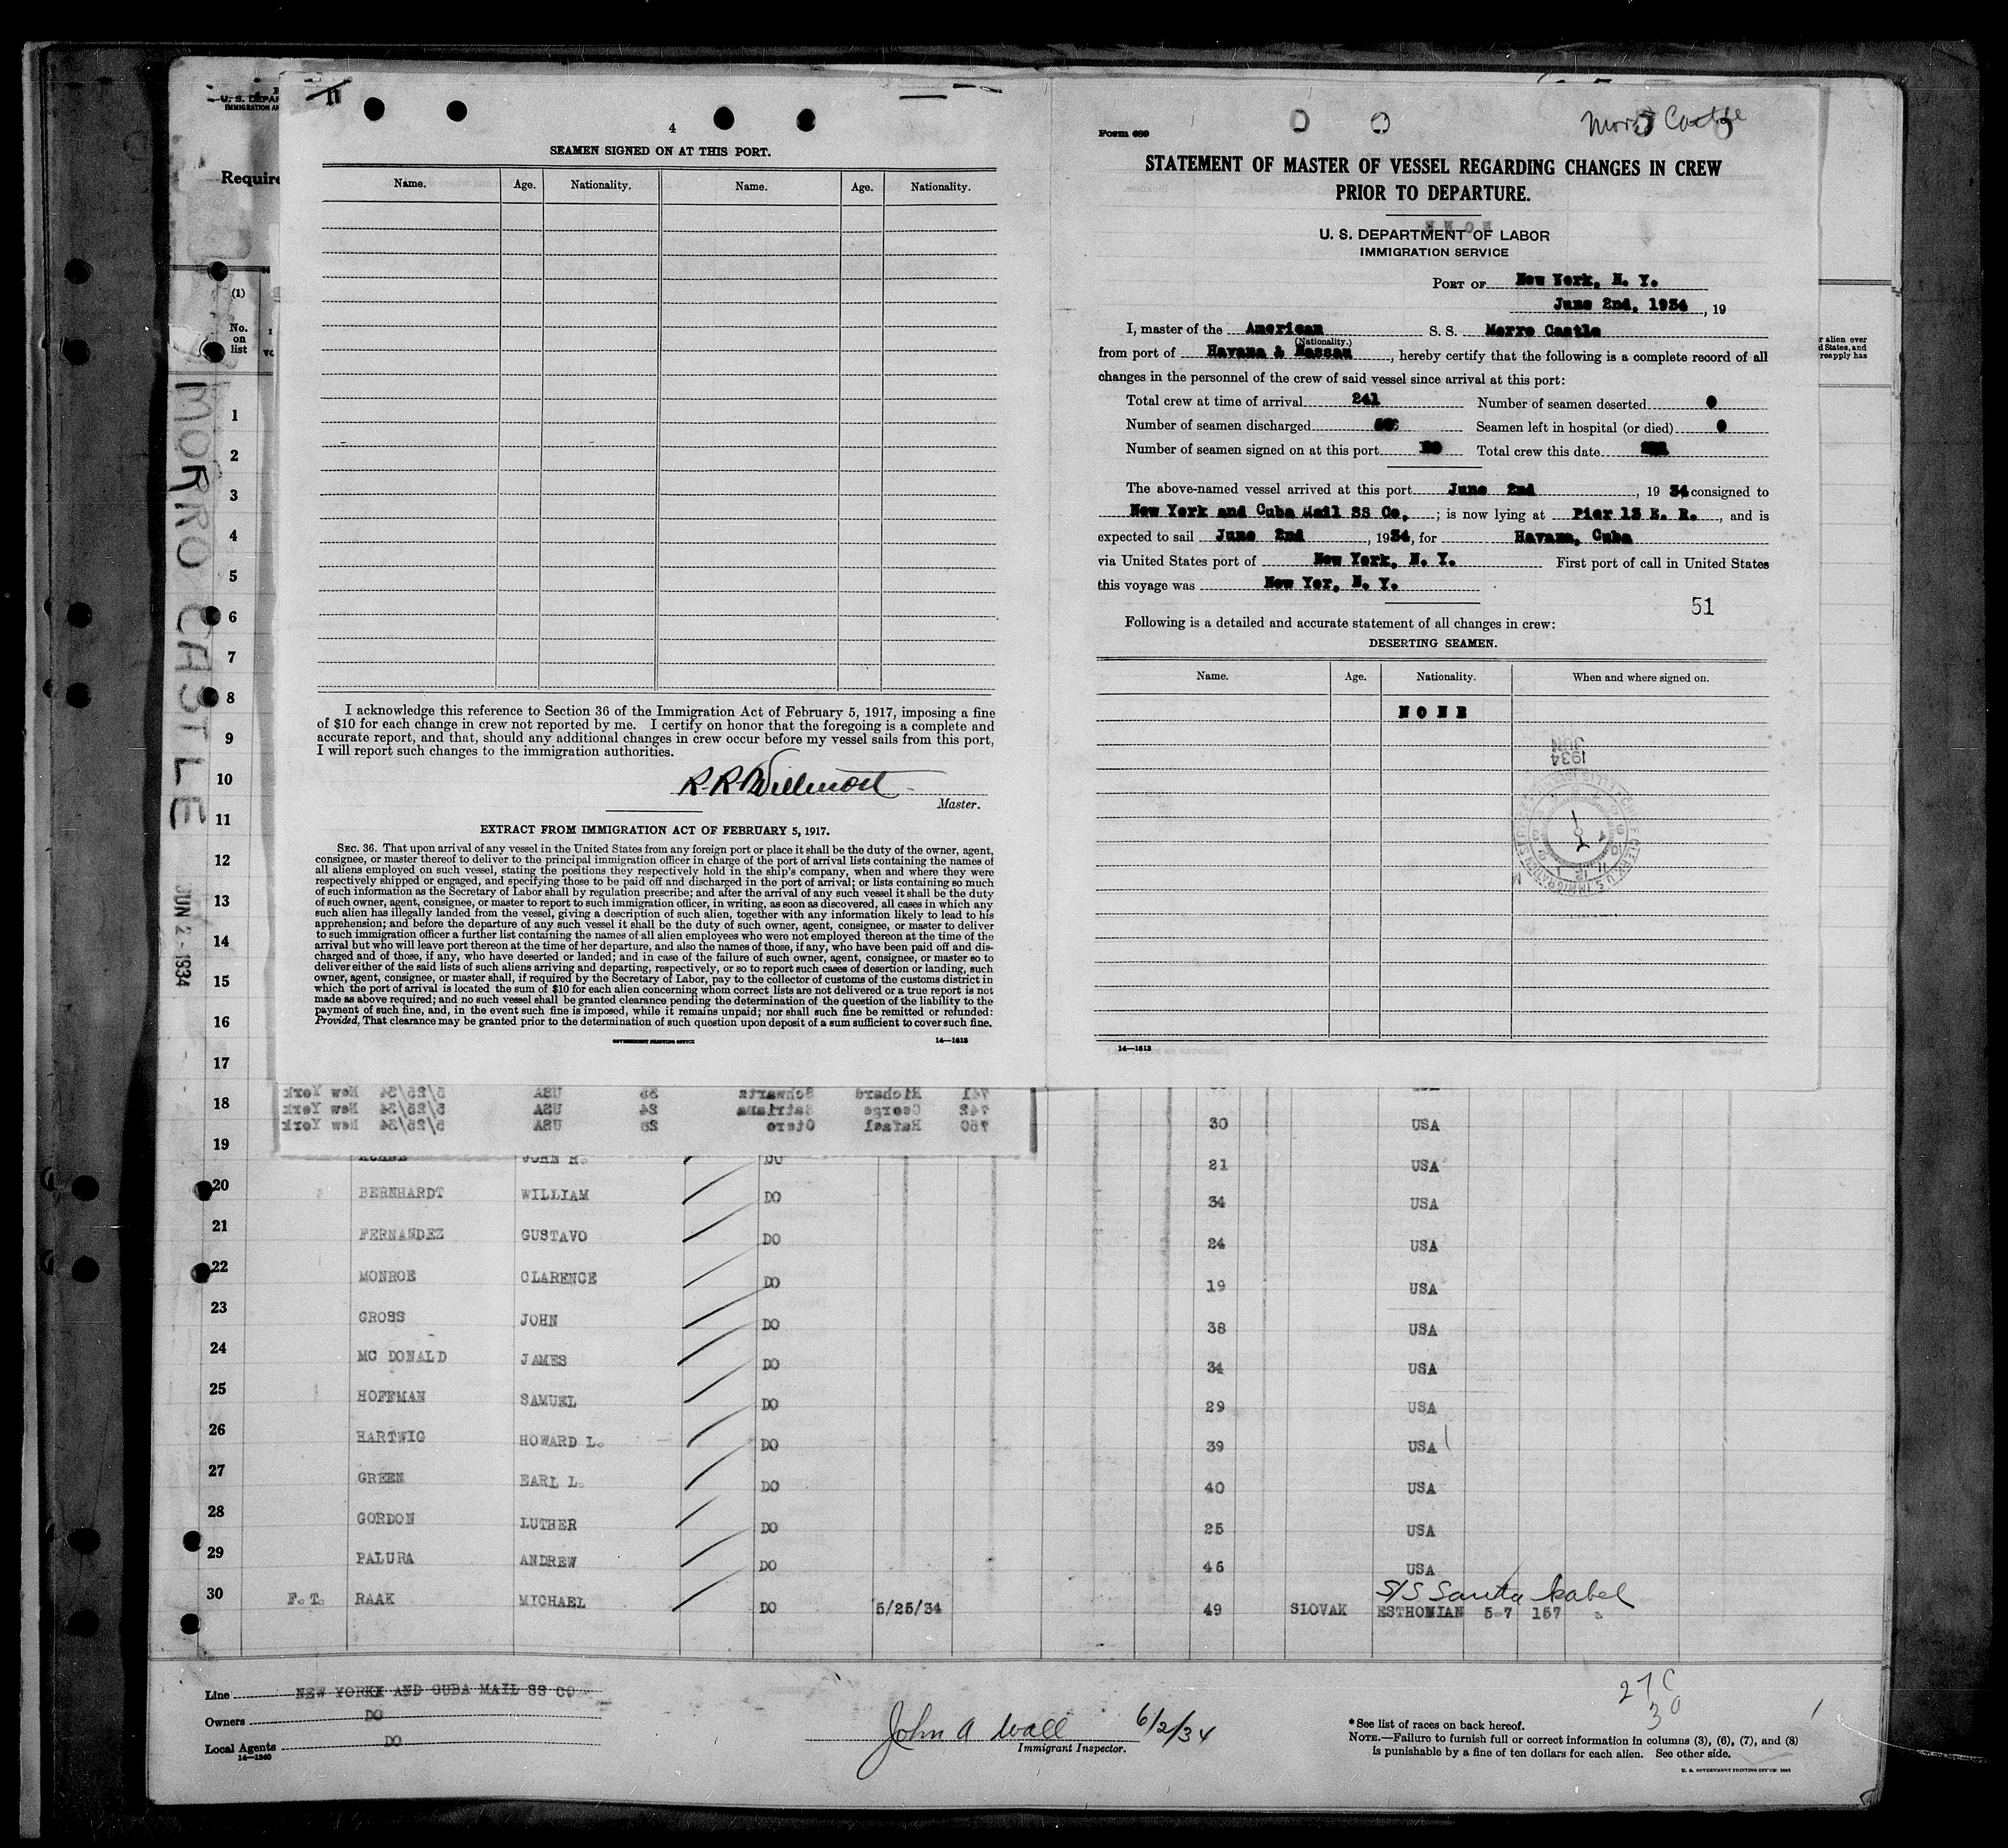 4
SEAMEN SIGNED ON AT THIS PORT.
Name. Age. Nationality. Name. Age. Nationality.
I acknowledge this reference to Section 36 of the Immigration Act of February 5, 1917, imposing a fine
of $10 for each change in crew not reported by me. I certify on honor that the foregoing is a complete and
accurate report, and that, should any additional changes in crew occur before my vessel sails from this port,
I will report such changes to the immigration authorities.
R. R. Willmott
Master.
EXTRACT FROM IMMIGRATION ACT OF FEBRUARY 5, 1917.
SEC. 36. That upon arrival of any vessel in the United States from any foreign port or place it shall be the duty of the owner, agent,
consignee, or master thereof to deliver to the principal immigration officer in charge of the port of arrival lists containing the names of
all aliens employed on such vessel, stating the positions they respectively hold in the ship's company, when and where they were
respectively shipped or engaged, and specifying those to be paid off and discharged in the port of arrival; or lists containing so much
of such information as the Secretary of Labor shall by regulation prescribe; and after the arrival of any such vessel it shall be the duty
of such owner, agent, consignee, or master to report to such immigration officer, in writing, as soon as discovered, all cases in which any
such alien has illegally landed from the vessel, giving a description of such alien, together with any information likely to lead to his
apprehension; and before the departure of any such vessel it shall be the duty of such owner, agent, consignee, or master to deliver
to such immigration officer a further list containing the names of all alien employees who were not employed thereon at the time of the
arrival but who will leave port thereon at the time of her departure, and also the names of those, if any, who have been paid off and dis-
charged and of those, if any, who have deserted or landed; and in case of the failure of such owner, agent, consignee, or master so to
deliver either of the said lists of such aliens arriving and departing, respectively, or so to report such cases of desertion or landing, such
owner, agent, consignee, or master shall, if required by the Secretary of Labor, pay to the collector of customs of the customs district in
which the port of arrival is located the sum of $10 for each alien concerning whom correct lists are not delivered or a true report is not
made as above required; and no such vessel shall be granted clearance pending the determination of the question of the liability to the
payment of such fine, and, in the event such fine is imposed, while it remains unpaid; nor shall such fine be remitted or refunded:
Provided, That clearance may be granted prior to the determination of such question upon deposit of a sum sufficient to cover such fine.
GOVERNMENT PRINTING OFFICE 14—1613
Form 689
Morro Castle
STATEMENT OF MASTER OF VESSEL REGARDING CHANGES IN CREW
PRIOR TO DEPARTURE.
U. S. DEPARTMENT OF LABOR
IMMIGRATION SERVICE
PORT OF New York, N. Y.
June 2nd, 1934, 19
I, master of the American S. S. Morro Castle
(Nationality.)
from port of Havana & Nassau, hereby certify that the following is a complete record of all
changes in the personnel of the crew of said vessel since arrival at this port:
Total crew at time of arrival 241 Number of seamen deserted 0
Number of seamen discharged Seamen left in hospital (or died) 0
Number of seamen signed on at this port Total crew this date
The above-named vessel arrived at this port June 2nd, 19 34 consigned to
New York and Cuba Mail SS Co.; is now lying at Pier 13 E. R., and is
expected to sail June 2nd, 1934, for Havana, Cuba
via United States port of New York, N. Y. First port of call in United States
this voyage was New Yor, N. Y.
51
Following is a detailed and accurate statement of all changes in crew:
DESERTING SEAMEN.
Name. Age. Nationality. When and where signed on.
NONE
1934
JUN
14—1613
U. S. DEPAR
IMMIGRATION AN
Require
(1)
No.
on
list
r alien over
d States, and
reapply has
MORRO CASTLE
JUN 2 - 1934
1
2
3
4
5
6
7
8
9
10
11
12
13
14
15
16
17
741 Richard Schwartz 38 USA 5/25/34 New York
18
742 George Satriana 24 USA 5/25/34 New York
750 Rafael Otero 28 USA 5/25/34 New York
30 USA
19 JOHN H. DO 21 USA
20 BERNHARDT WILLIAM DO 34 USA
21 FERNANDEZ GUSTAVO DO 24 USA
22 MONROE CLARENCE DO 19 USA
23 GROSS JOHN DO 38 USA
24 MC DONALD JAMES DO 34 USA
25 HOFFMAN SAMUEL DO 29 USA
26 HARTWIG HOWARD L. DO 39 USA
27 GREEN EARL L. DO 40 USA
28 GORDON LUTHER DO 25 USA
29 PALURA ANDREW DO 46 USA
S/S Santa Isabel
30 F. T. RAAK MICHAEL DO 5/25/34 49 SLOVAK ESTHONIAN 5-7 157
Line NEW YORKK AND CUBA MAIL SS CO
Owners DO
Local Agents DO
14—1240
John A Wall 6/2/34
Immigrant Inspector.
27C
30
*See list of races on back hereof.
NOTE.—Failure to furnish full or correct information in columns (3), (6), (7), and (8)
is punishable by a fine of ten dollars for each alien. See other side.
U. S. GOVERNMENT PRINTING OFFICE